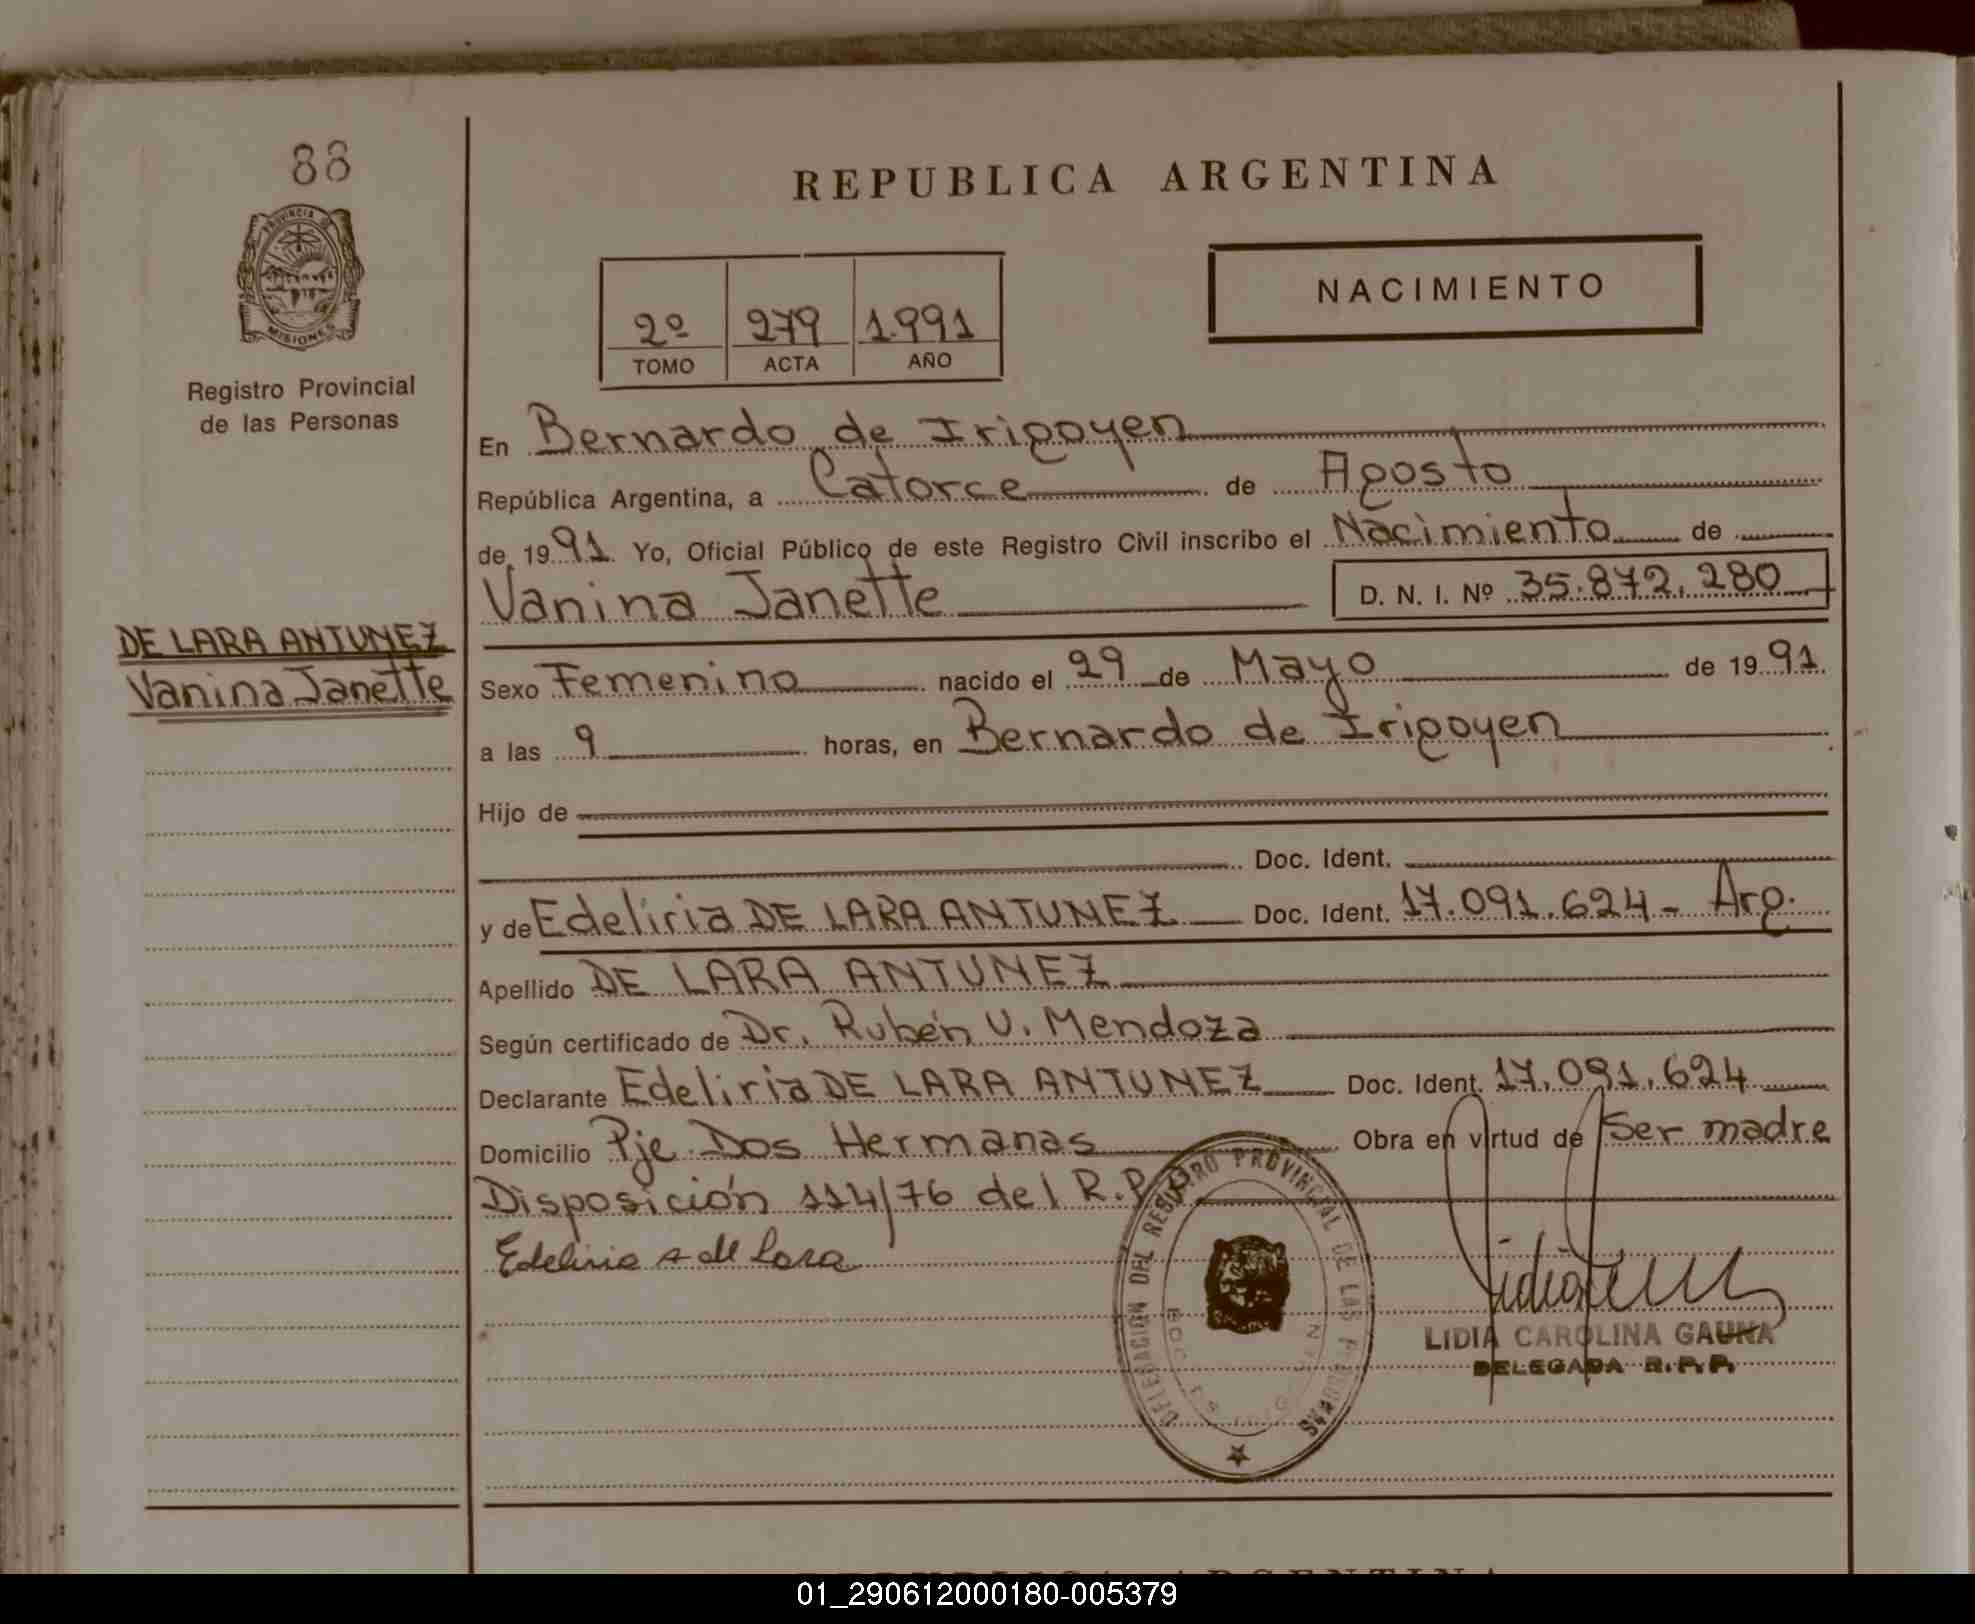 88
REPUBLICA ARGENTINA
PROVINCIA DE
MISIONES
Registro Provincial
de las Personas
2º 279 1.991
TOMO ACTA AÑO
NACIMIENTO
En Bernardo de Irigoyen
República Argentina, a Catorce de Agosto
de 1991 Yo, Oficial Público de este Registro Civil inscribo el Nacimiento de
Vanina Janette D. N. I. Nº 35.872.280
DE LARA ANTUNEZ
Vanina Janette
Sexo Femenino nacido el 29 de Mayo de 1991
a las 9 horas, en Bernardo de Irigoyen
Hijo de
Doc. Ident.
y de Edeliria DE LARA ANTUNEZ Doc. Ident. 17.091.624- Arg.
Apellido DE LARA ANTUNEZ
Según certificado de Dr. Rubén U. Mendoza
Declarante Edeliria DE LARA ANTUNEZ Doc. Ident. 17.091.624
Domicilio Pje. Dos Hermanas Obra en virtud de Ser madre
Disposición 114/76 del R.P.P.
Edeliria A de Lara
DELEGACION DEL REGISTRO PROVINCIAL DE LAS PERSONAS
LIDIA CAROLINA GAUNA
DELEGADA R.P.P.
REPUBLICA ARGENTINA
01_290612000180-005379